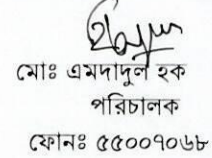 মোঃ এমদাদুল হক
পরিচালক
ফোনঃ ৫৫০০৭০৬৮